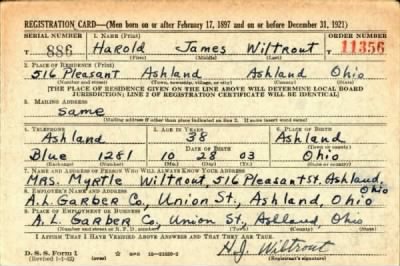 REGISTRATION CARD—(Men born on or after February 17, 1897 and on or before December 31, 1921)
SERIAL NUMBER 1. NAME (Print) ORDER NUMBER
T 886 Harold James Wiltrout T 11356
(First) (Middle) (Last)
2. PLACE OF RESIDENCE (Print)
516 Pleasant Ashland Ashland Ohio
(Number and street) (Town, township, village, or city) (County) (State)
[THE PLACE OF RESIDENCE GIVEN ON THE LINE ABOVE WILL DETERMINE LOCAL BOARD
JURISDICTION; LINE 2 OF REGISTRATION CERTIFICATE WILL BE IDENTICAL]
3. MAILING ADDRESS
Same
[Mailing address if other than place indicated on line 2. If same insert word same]
4. TELEPHONE 5. AGE IN YEARS 6. PLACE OF BIRTH
Ashland 38 Ashland
DATE OF BIRTH (Town or county)
Blue 1281 10 28 03 Ohio
(Exchange) (Number) (Mo.) (Day) (Yr.) (State or country)
7. NAME AND ADDRESS OF PERSON WHO WILL ALWAYS KNOW YOUR ADDRESS
Mrs. Myrtle Wiltrout, 516 Pleasant St. Ashland, Ohio
8. EMPLOYER'S NAME AND ADDRESS
A.L. Garber Co., Union St., Ashland, Ohio
9. PLACE OF EMPLOYMENT OR BUSINESS
A.L. Garber Co., Union St., Ashland, Ohio
(Number and street or R. F. D. number) (Town) (County) (State)
I AFFIRM THAT I HAVE VERIFIED ABOVE ANSWERS AND THAT THEY ARE TRUE.
D. S. S. Form 1
(Revised 1-1-42) GPO 16—21630-2 H.J. Wiltrout
(Registrant's signature)